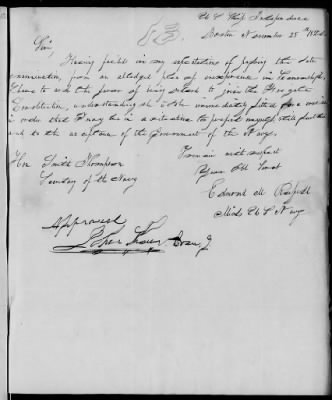 U S Ship Independence
Boston November 25th 182
53.
Sir,
Having failed in my expectations of passing the late
examination, from an alledged plea of inexperience in Seamanship,
I have to ask the favor of being ordered to join the Frigate
Constitution, understanding she is to be immediately fitted for a cruise
in order that I may be in a situation to
and to the of the Government of the Navy.
I remain with respect
Your Obt Servt
Edmond M
Mid. U S Navy
Hon Smith Thompson
Secretary of the Navy
Approved
John Shaw